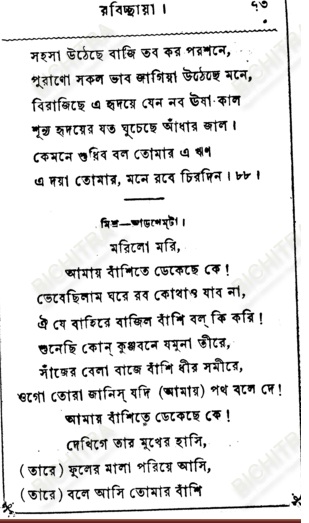 রবিচ্ছায়া। ৭৩
সহসা উঠেছে বাজি তব কর পরশনে,
পুরাণো সকল ভাব জাগিয়া উঠেছে মনে,
বিরাজিছে এ হৃদয়ে যেন নব ঊষা কাল
শূন্য হৃদয়ের যত ঘুচেছে আঁধার জাল।
কেমনে শুধিব বল তোমার এ ঋণ
এ দয়া তোমার, মনে রবে চিরদিন। ৮৮।
মিশ্র—আড়খেম্‌টা।
মরিলো মরি,
আমায় বাঁশিতে ডেকেছে কে!
ভেবেছিলাম ঘরে রব কোথাও যাব না,
ঐ যে বাহিরে বাজিল বাঁশি বল্ কি করি!
শুনেছি কোন্ কুঞ্জবনে যমুনা তীরে,
সাঁজের বেলা বাজে বাঁশি ধীর সমীরে,
ওগো তোরা জানিস্ যদি (আমায়) পথ বলে দে!
আমায় বাঁশিতে ডেকেছে কে!
দেখিগে তার মুখের হাসি,
(তারে) ফুলের মালা পরিয়ে আসি,
(তারে) বলে আসি তোমার বাঁশি
BICHITRA